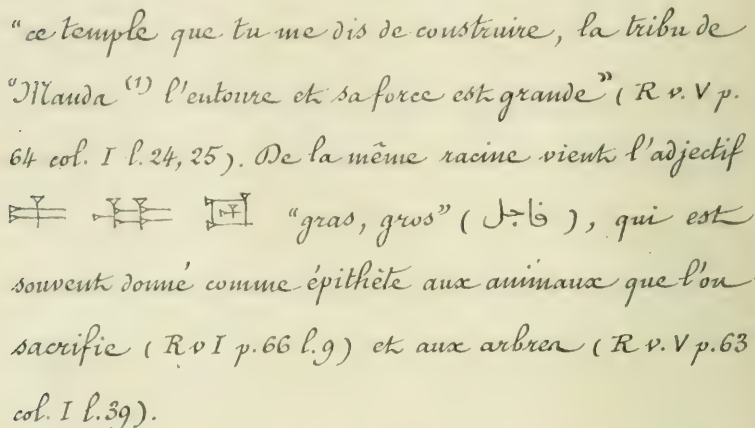 “ce temple que tu me dis de construire, la tribu de
“Manda (1) l'entoure et sa force est grande” (R v. V p.
64 col. I l. 24, 25). De la même racine vient l'adjectif
“gras, gros” (فاجل), qui est
souvent donné comme épithète aux animaux que l'on
sacrifie (R v I p. 66 l. 9) et aux arbres (R v. V p. 63
col. I l. 39).